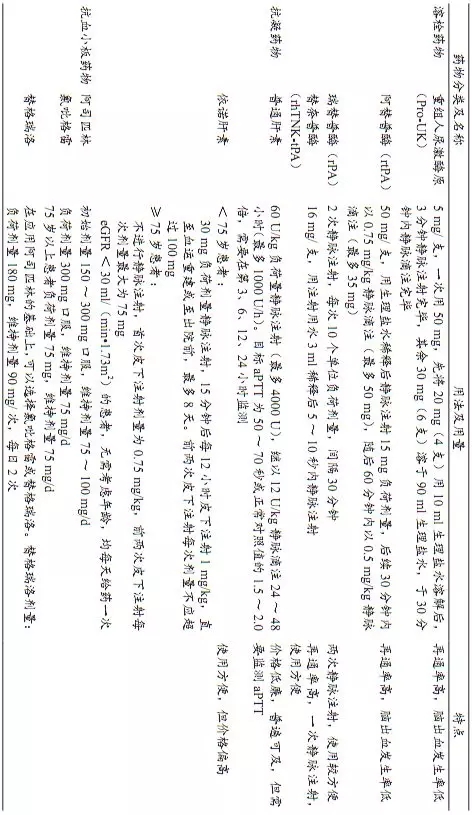 药物分类及名称 用法及用量 特点
溶栓药物 重组人尿激酶原 5 mg/支，一次用 50 mg，先将 20 mg（4 支）用 10 ml 生理盐水溶解后， 再通率高，脑出血发生率低
(Pro-UK) 3 分钟静脉注射完毕，其余 30 mg（6 支）溶于 90 ml 生理盐水，于 30 分
钟内静脉滴注完毕
阿替普酶（rtPA） 50 mg/支，用生理盐水稀释后静脉注射 15 mg 负荷剂量，后续 30 分钟内 再通率高，脑出血发生率低
以 0.75 mg/kg 静脉滴注（最多 50 mg），随后 60 分钟内以 0.5 mg/kg 静脉
滴注（最多 35 mg）
瑞替普酶（rPA） 2 次静脉注射，每次 10 个单位负荷剂量，间隔 30 分钟 两次静脉注射，使用较方便
替奈普酶 16 mg/支，用注射用水 3 ml 稀释后 5～10 秒内静脉注射 再通率高，一次静脉注射，
(rhTNK-tPA) 使用方便
抗凝药物 普通肝素 60 U/kg 负荷量静脉注射（最多 4000 U），继以 12 U/kg 静脉滴注 24～48 价格低廉，普遍可及，但需
小时（最多 1000 U/h）。目标 aPTT 为 50～70 秒或正常对照值的 1.5～2.0 要监测 aPTT
倍，需要在第 3、6、12、24 小时监测
依诺肝素 ＜75 岁患者： 使用方便，但价格偏高
30 mg 负荷剂量静脉注射，15 分钟后每 12 小时皮下注射 1 mg/kg，直
至血运重建或至出院前，最多 8 天。前两次皮下注射每次剂量不应超
过 100 mg
≥75 岁患者：
不进行静脉注射，首次皮下注射剂量为 0.75 mg/kg，前两次皮下注射每
次剂量最大为 75 mg
eGFR＜30 ml/（min·1.73m²）的患者，无需考虑年龄，均每天给药一次
抗血小板药物 阿司匹林 初始剂量 150～300 mg 口服，维持剂量 75～100 mg/d
氯吡格雷 负荷剂量 300 mg 口服，维持剂量 75 mg/d
75 岁以上患者负荷剂量 75 mg，维持剂量 75 mg/d
替格瑞洛 在应用阿司匹林的基础上，可以选择氯吡格雷或替格瑞洛。替格瑞洛剂量：
负荷剂量 180 mg，维持剂量 90 mg/次，每日 2 次